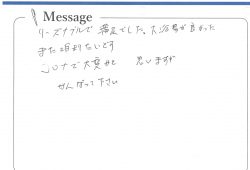 Message
リーズナブルで 満足でした。大浴場が良かった
また 利用したいです
コロナで大変かと 思いますが
がんばって下さい